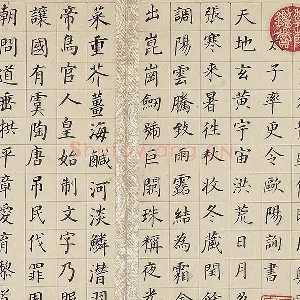 子率更令歐陽詢書
天地玄黃宇宙洪荒日月
張寒來暑往秋收冬藏閏
調陽雲騰致雨露結為霜金
出崑崗劍號巨闕珠稱夜光
菜重芥薑海鹹河淡鱗潛羽
帝鳥官人皇始制文字乃服
讓國有虞陶唐吊民伐罪
朝問道垂拱平章愛育黎